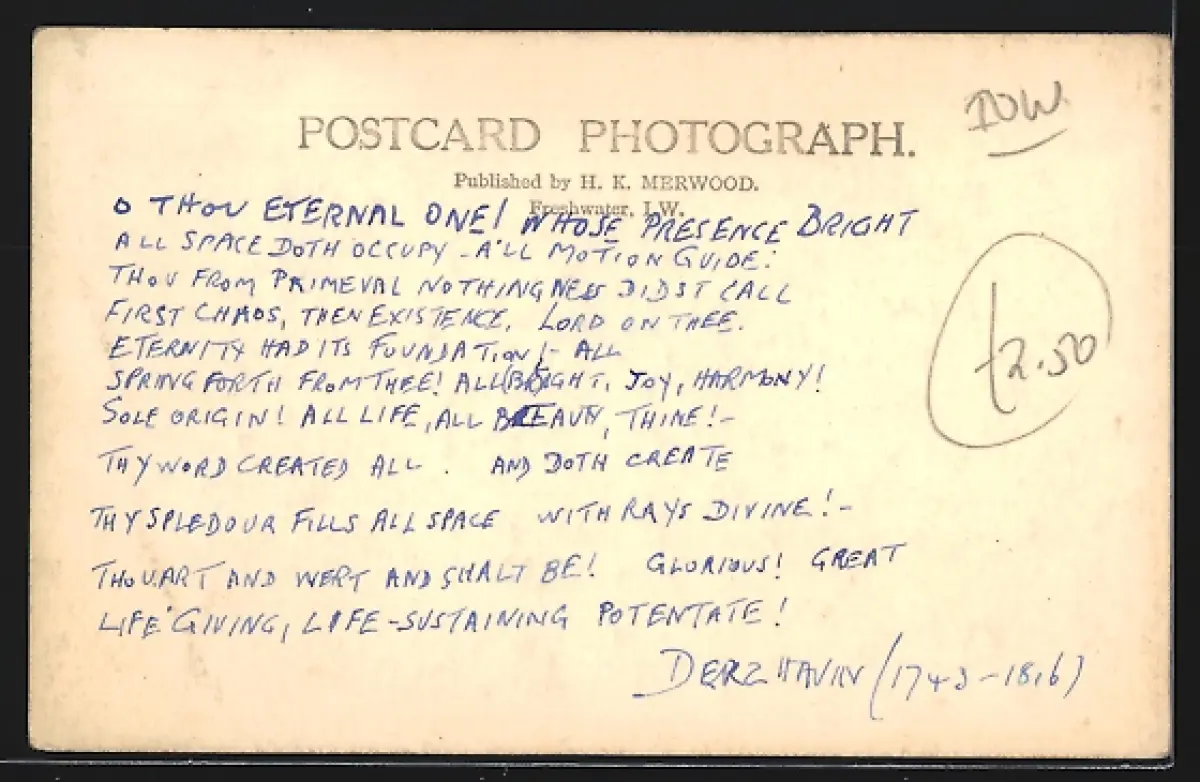 IOW
POSTCARD PHOTOGRAPH.
Published by H. K. MERWOOD.
Freshwater, I.W.
O THOU ETERNAL ONE! WHOSE PRESENCE BRIGHT
ALL SPACE DOTH OCCUPY - ALL MOTION GUIDE:
THOU FROM PRIMEVAL NOTHINGNESS DIDST CALL
FIRST CHAOS, THEN EXISTENCE. LORD ON THEE.
ETERNITY HAD ITS FOUNDATION!- ALL
SPRING FORTH FROM THEE! ALL BRIGHT, JOY, HARMONY!
£2.50
SOLE ORIGIN! ALL LIFE, ALL BEAUTY, THINE!-
THY WORD CREATED ALL. AND DOTH CREATE
THY SPLEDOUR FILLS ALL SPACE WITH RAYS DIVINE!-
THOU ART AND WERT AND SHALT BE! GLORIOUS! GREAT
LIFE-GIVING, LIFE-SUSTAINING POTENTATE!
DERZHAVIN (1743-1816)